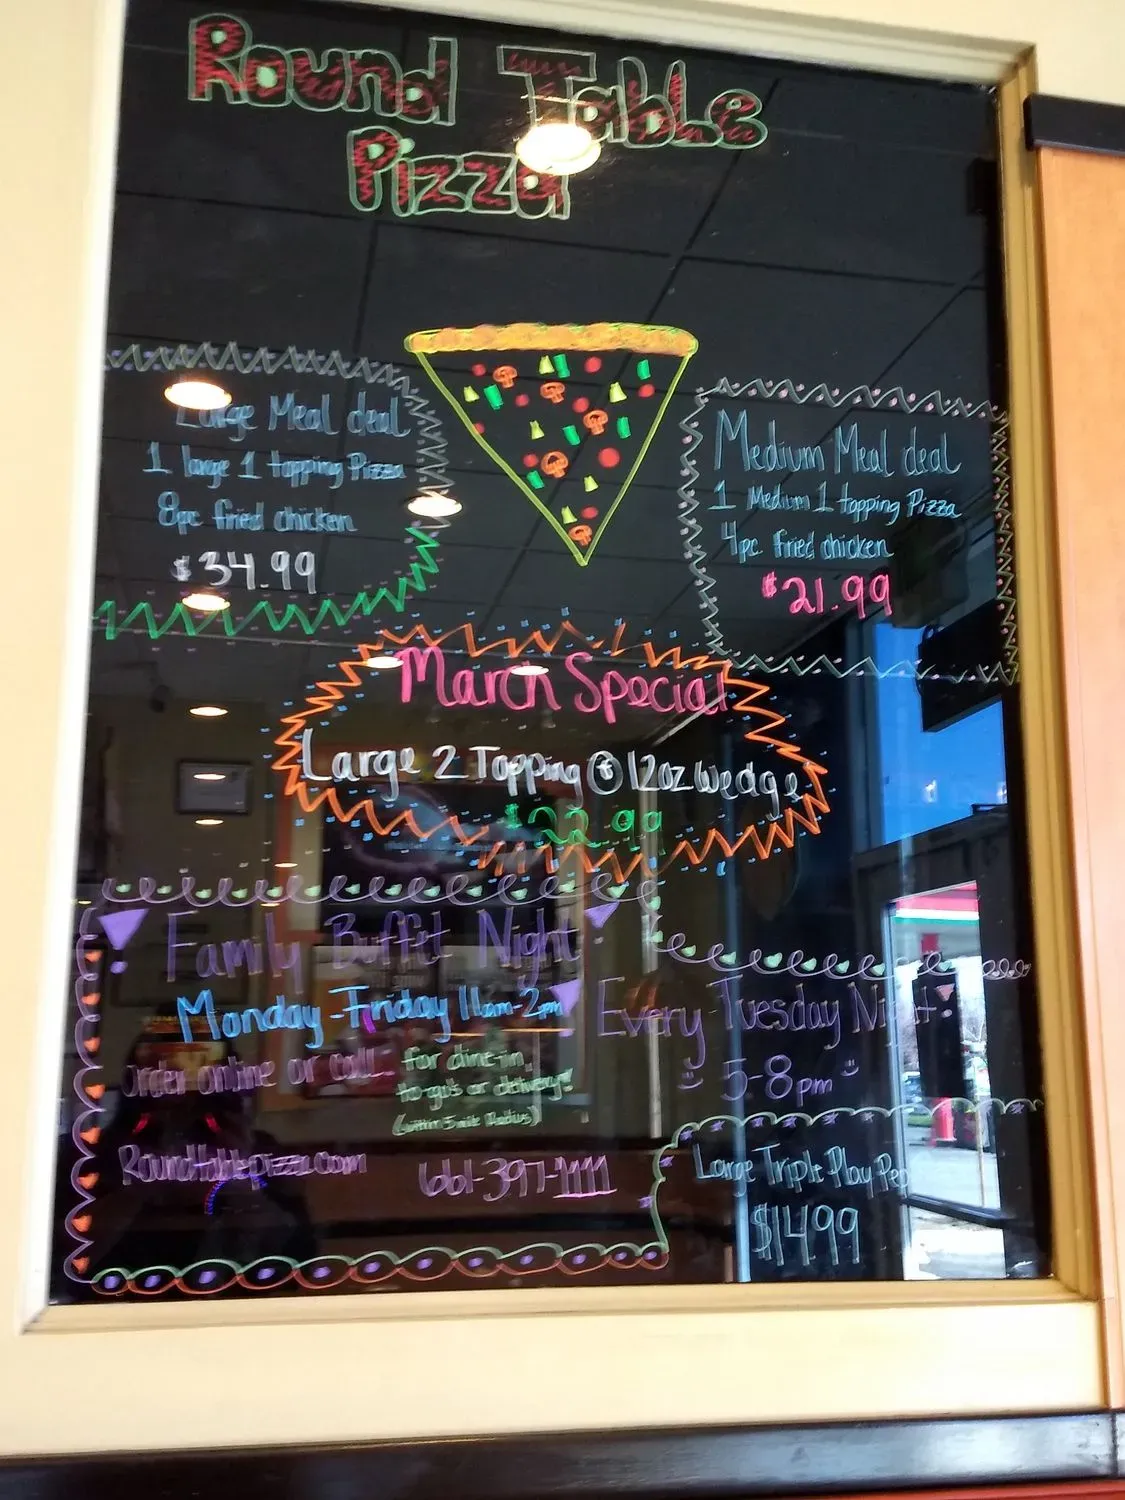 Round Table
Pizza
Large Meal deal
1 large 1 topping Pizza
8pc fried chicken
$34.99
Medium Meal deal
1 Medium 1 topping Pizza
4pc fried chicken
$21.99
March Special
Large 2 Topping + 12oz Wedge
$22.99
Family Buffet Night
Monday-Friday 11am-2pm
order online or call
for dine-in,
to-go's or delivery!
(within 5 mile Radius)
Roundtablepizza.com
661-397-1111
Every Tuesday Night
5-8pm
Large Triple Play Pep
$14.99